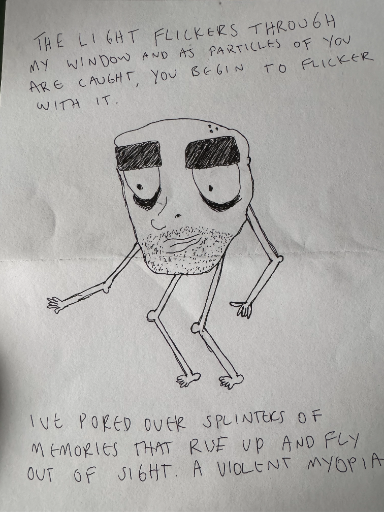 THE LIGHT FLICKERS THROUGH
MY WINDOW AND AS PARTICLES OF YOU
ARE CAUGHT, YOU BEGIN TO FLICKER
WITH IT.
IVE PORED OVER SPLINTERS OF
MEMORIES THAT RVE UP AND FLY
OUT OF SIGHT. A VIOLENT MYOPIA